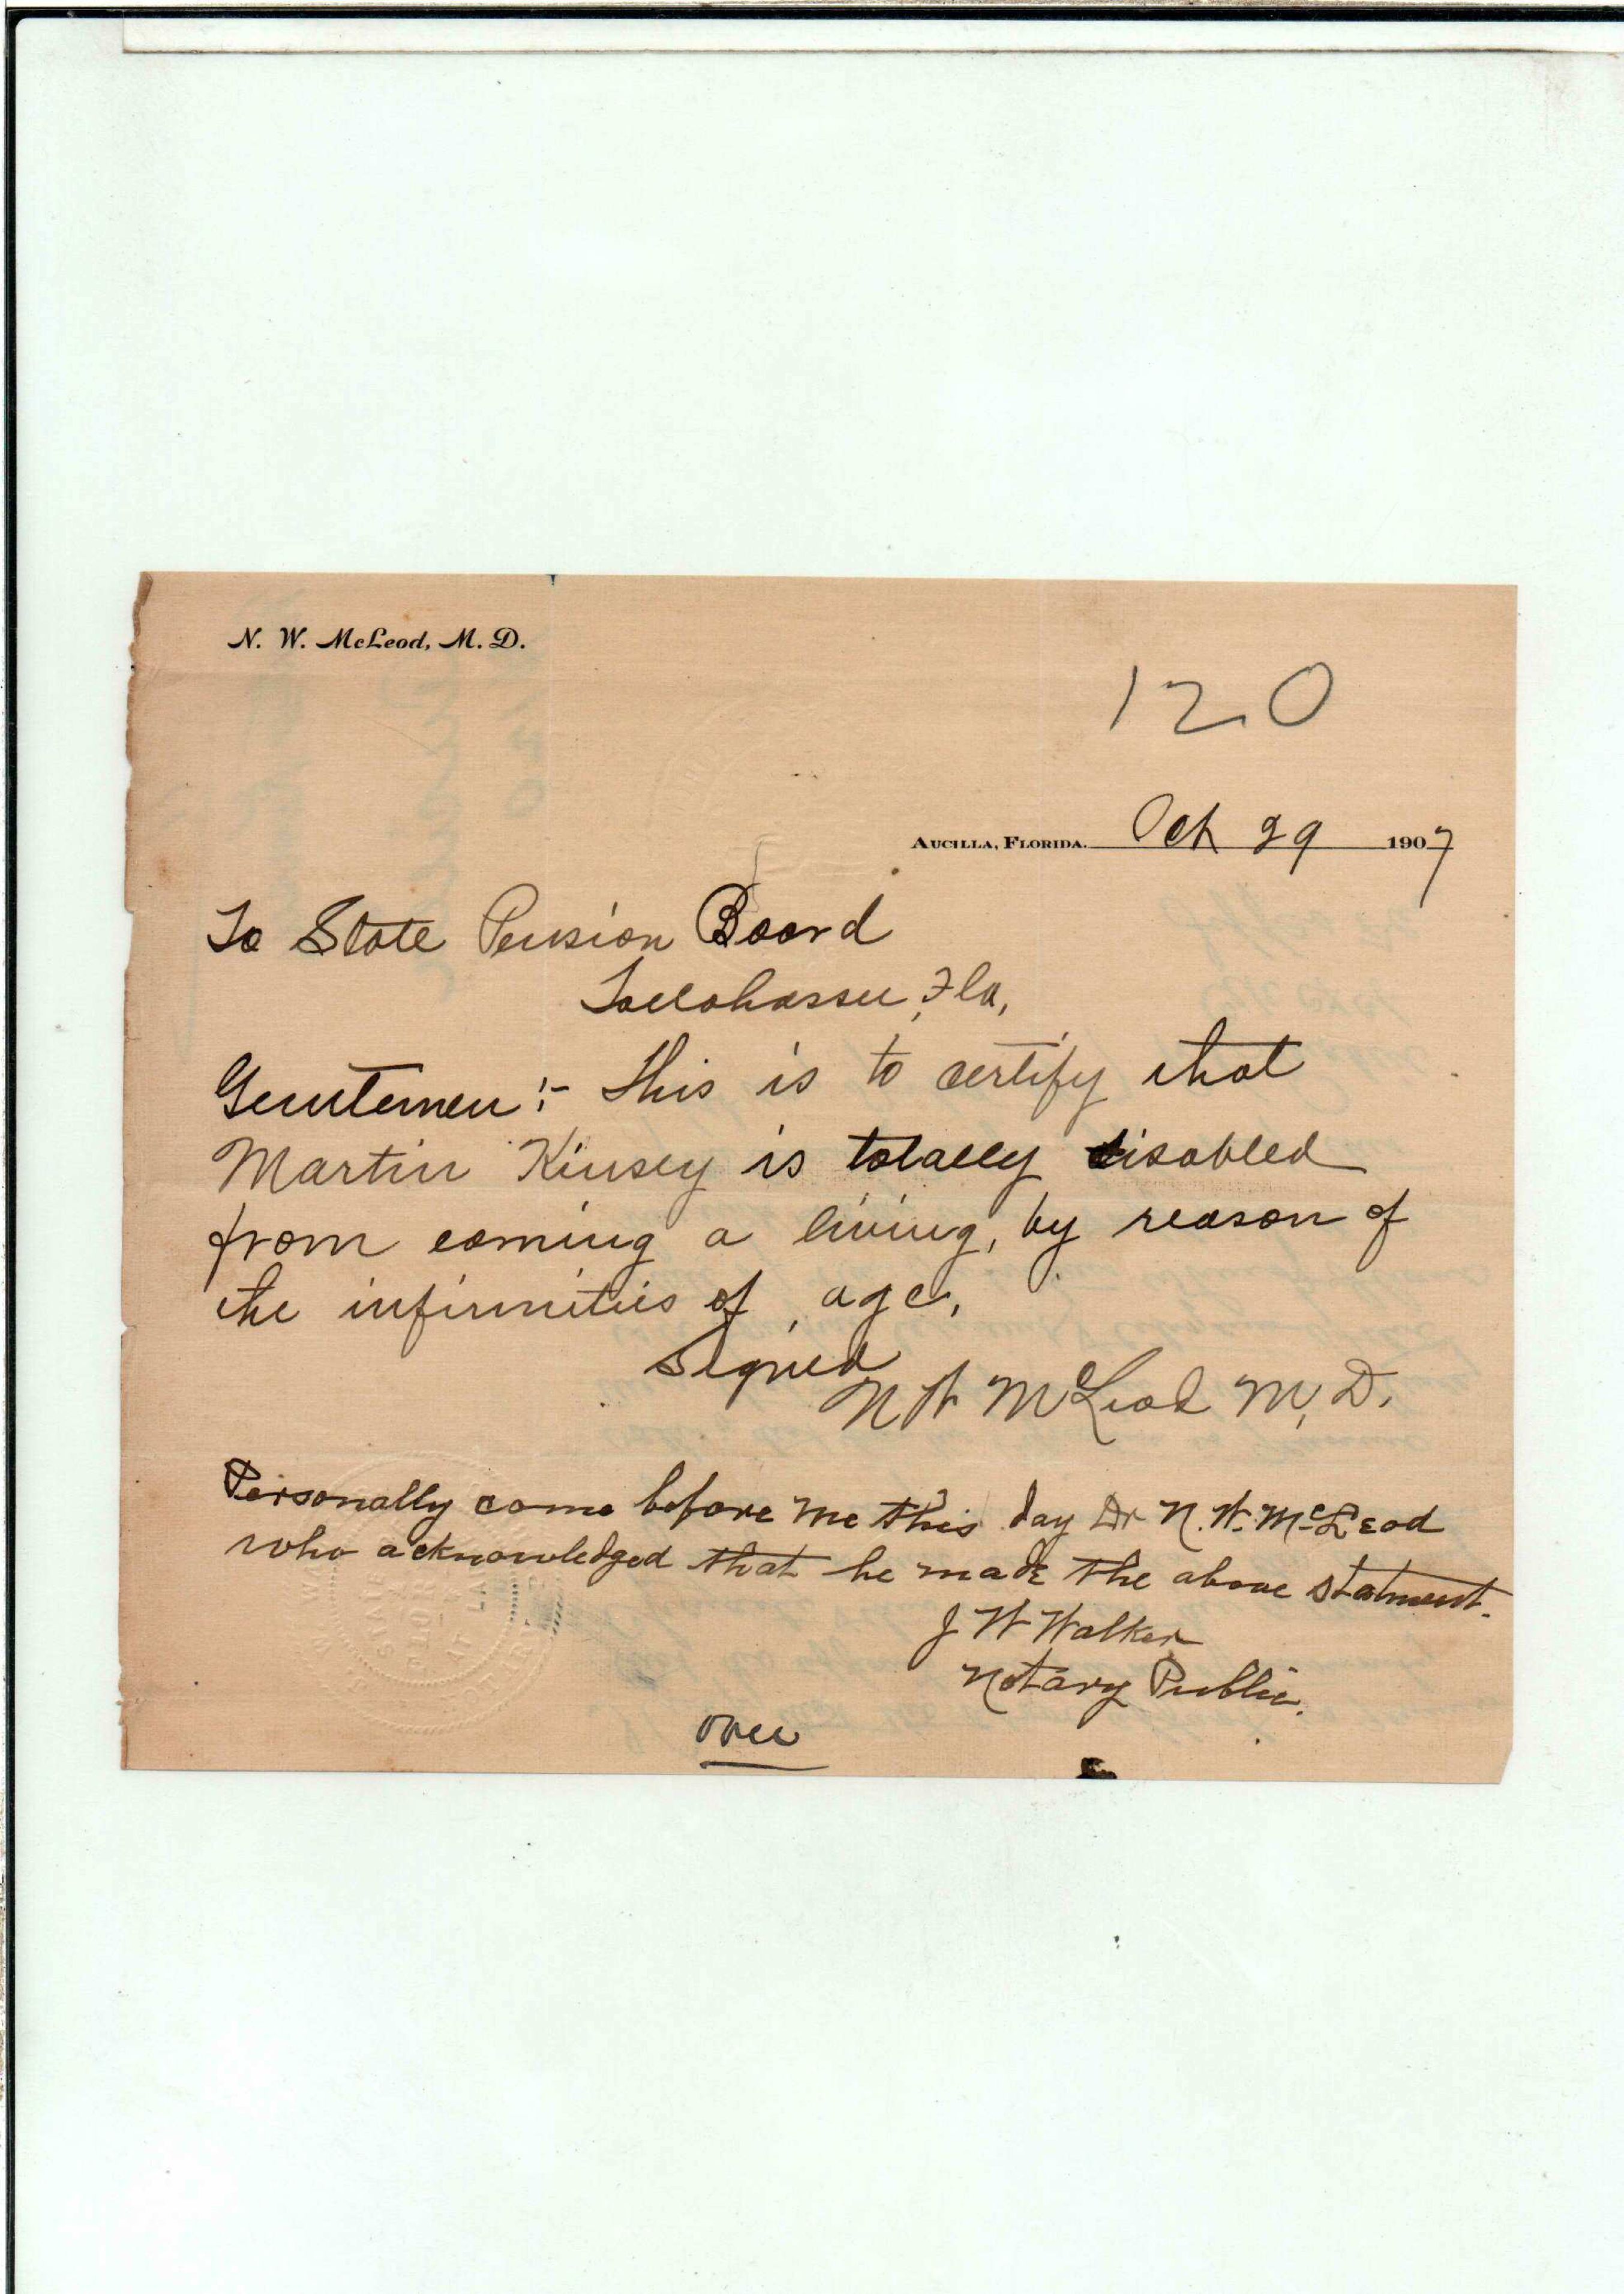 N. W. McLeod, M. D.
120
Aucilla, Florida. Oct 29 1907
To State Pension Board
Tallahassee, Fla,
Gentlemen:- This is to certify that
Martin Kinsey is totally disabled
from earning a living, by reason of
the infirmities of age,
Signed
N W McLeod M, D.
Personally came before me this day Dr N. W. McLeod
who acknowledged that he made the above statment.
J W Walker
Notary Public.
over